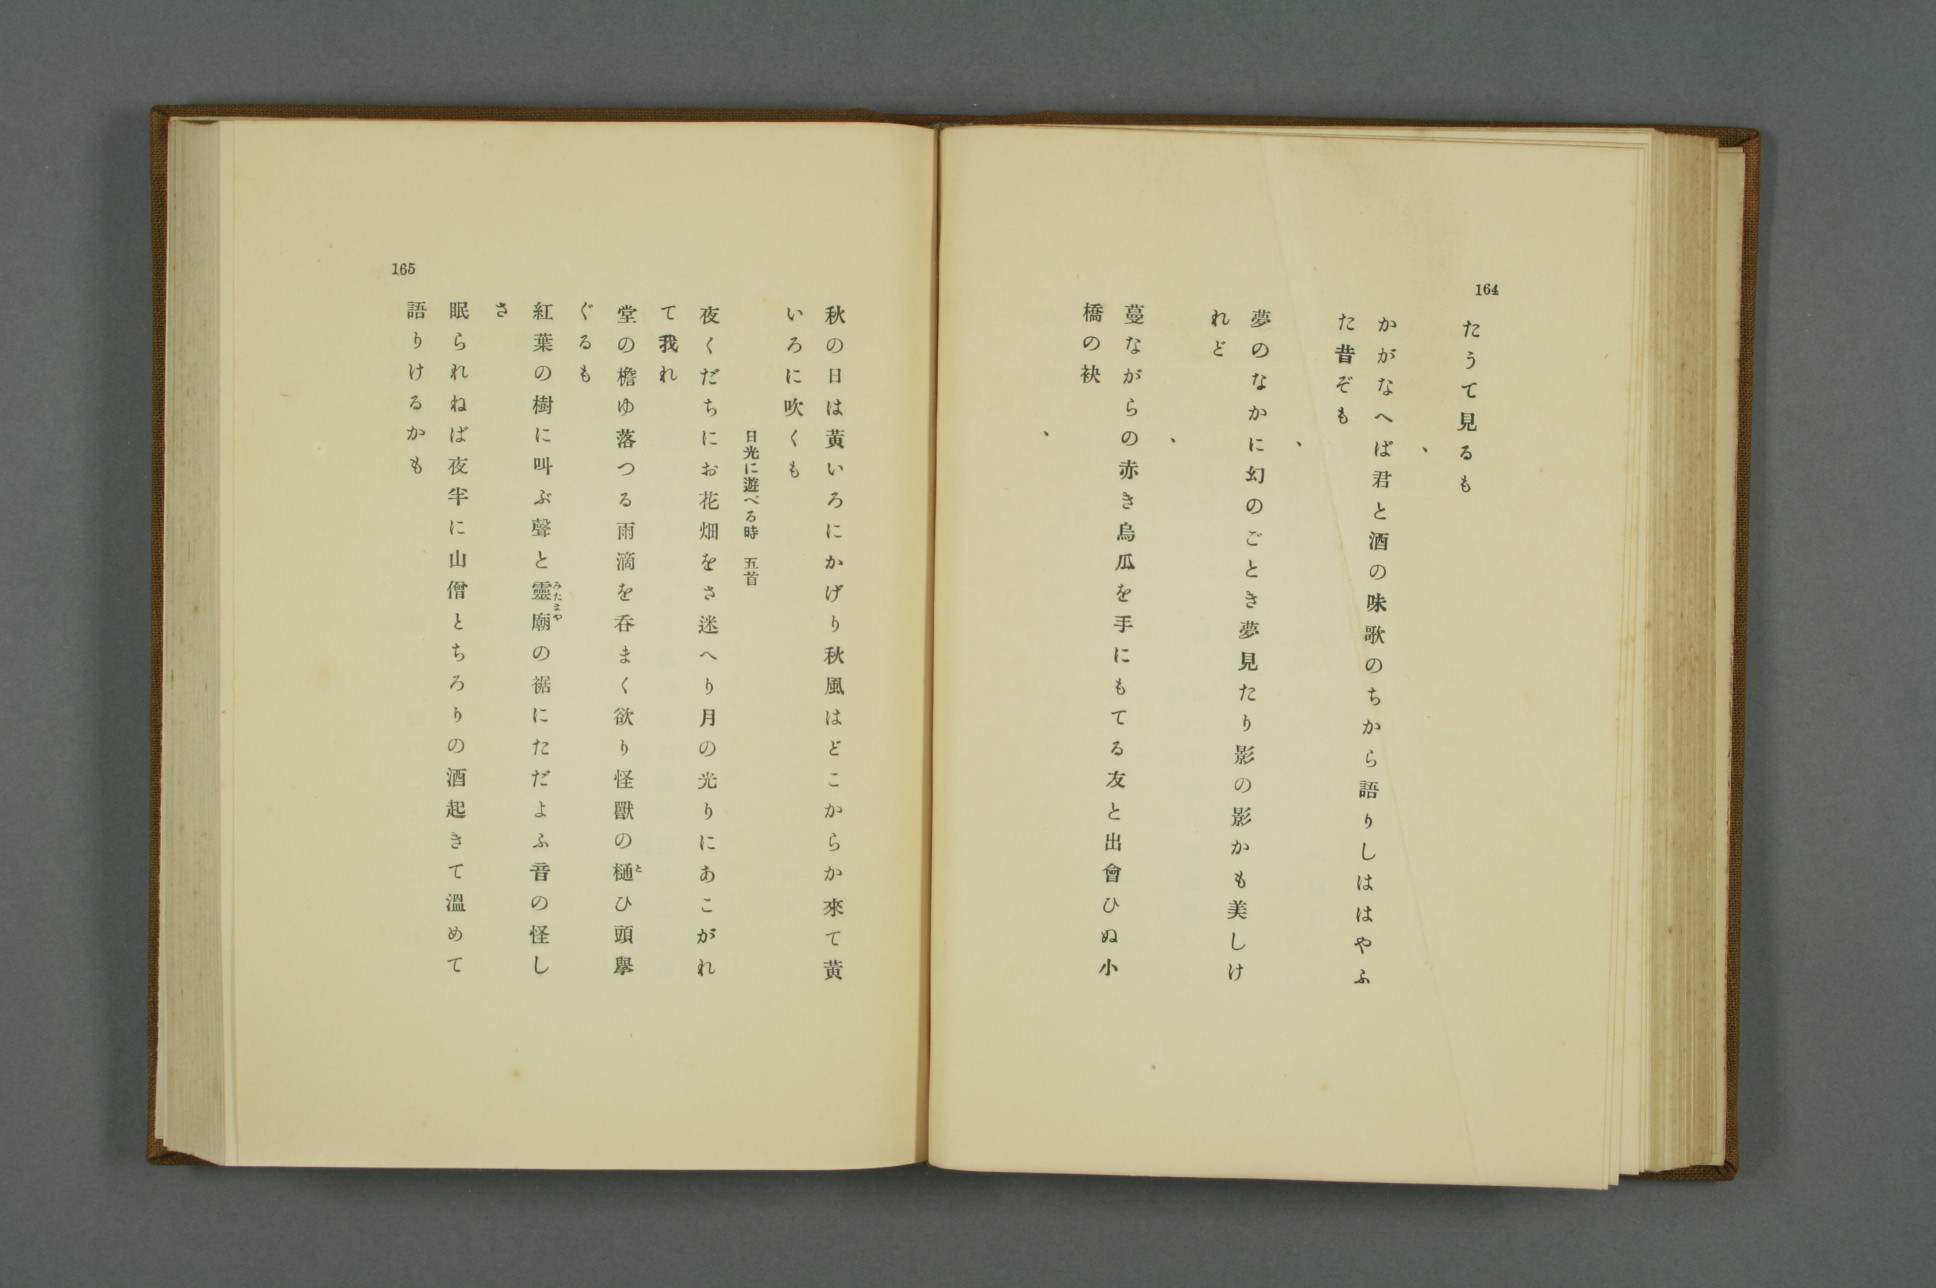 164
たうて見るも
、
かがなへば君と酒の味歌のちから語りしははやふ
た昔ぞも
、
夢のなかに幻のごとき夢見たり影の影かも美しけ
れど
、
蔓ながらの赤き烏瓜を手にもてる友と出會ひぬ小
橋の袂
、
秋の日は黃いろにかげり秋風はどこからか來て黃
いろに吹くも
日光に遊べる時 五首
夜くだちにお花畑をさ迷へり月の光りにあこがれ
て我れ
堂の檐ゆ落つる雨滴を呑まく欲り怪獸の樋ひ頭擧
と
ぐるも
紅葉の樹に叫ぶ聲と靈廟の裾にただよふ音の怪し
みたまや
さ
眠られねば夜半に山僧とちろりの酒起きて溫めて
語りけるかも
165